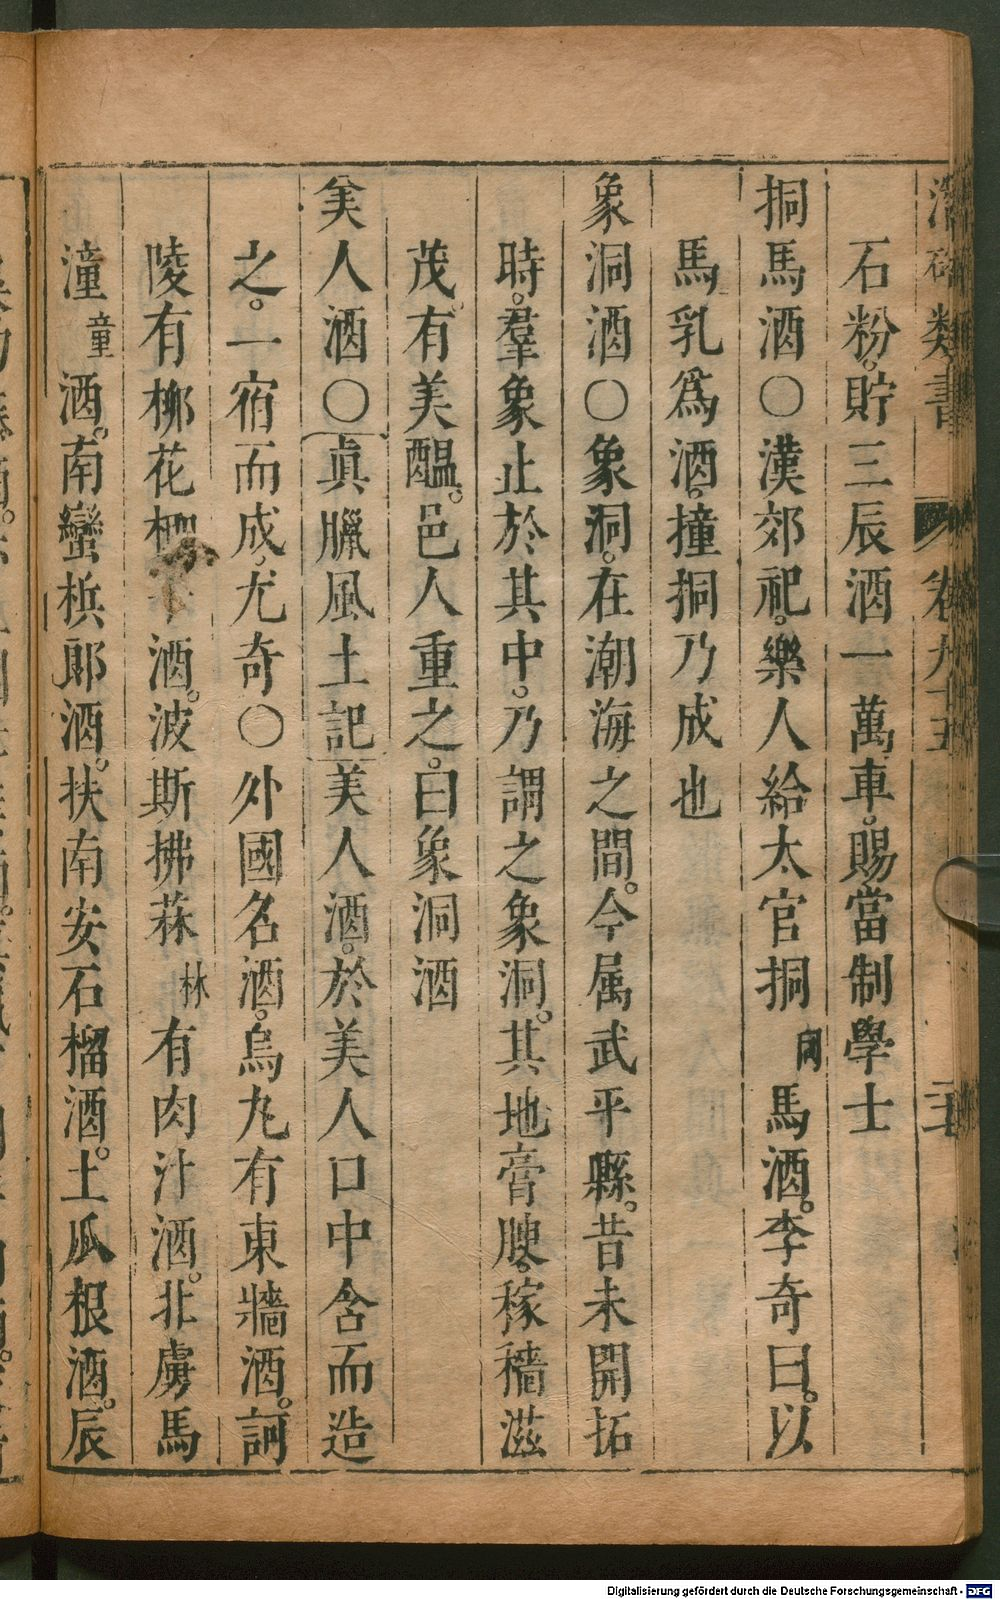 石粉。貯三辰酒一萬車。賜當制學士
挏馬酒〇漢郊祀。樂人給太官挏同馬酒。李奇曰。以
馬乳爲酒。撞挏乃成也
象洞酒〇象洞。在潮海之間。今属武平縣。昔未開拓
時。羣象止於其中。乃謂之象洞。其地膏腴。稼穡滋
茂。有美醞。邑人重之。曰象洞酒
美人酒〇眞臘風土記美人酒。於美人口中含而造
之。一宿而成。尤奇〇外國名酒。烏丸有東牆酒。訶
陵有椰花酒。波斯拂菻林有肉汁酒。北虜馬
潼童酒。南蠻梹郎酒。扶南安石榴酒。土瓜根酒。辰
Digitalisierung gefördert durch die Deutsche Forschungsgemeinschaft - DFG